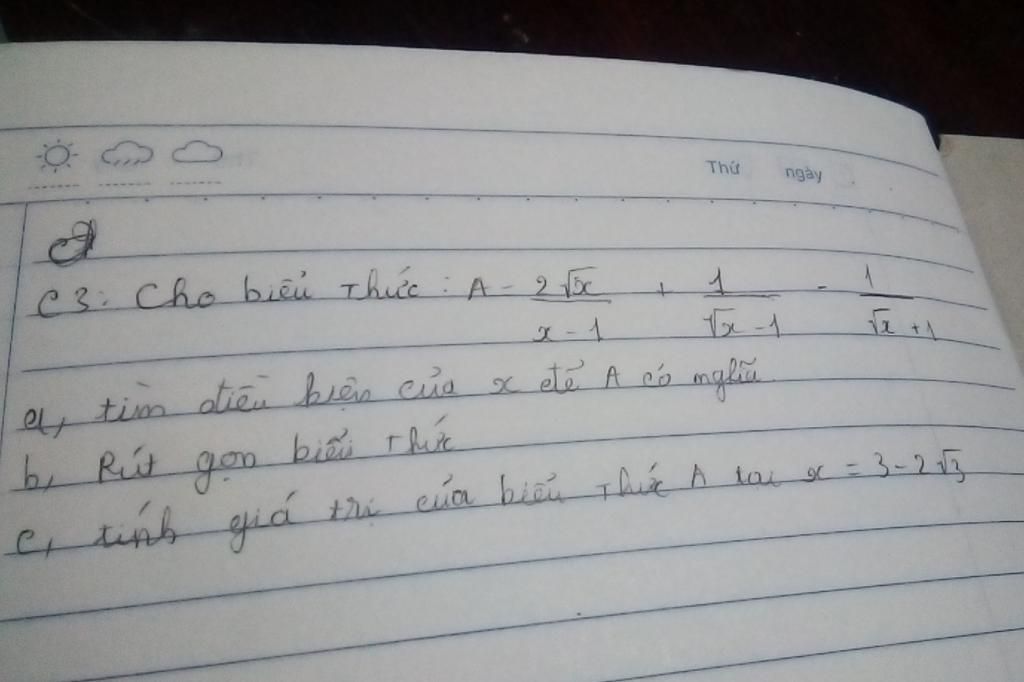 Thứ ngày
C3: Cho biểu thức: A = 2√x / x - 1 + 1 / √x - 1 - 1 / √x + 1
a, tìm điều kiện của x để A có nghĩa
b, Rút gọn biểu thức
c, tính giá trị của biểu thức A tại x = 3 - 2√3